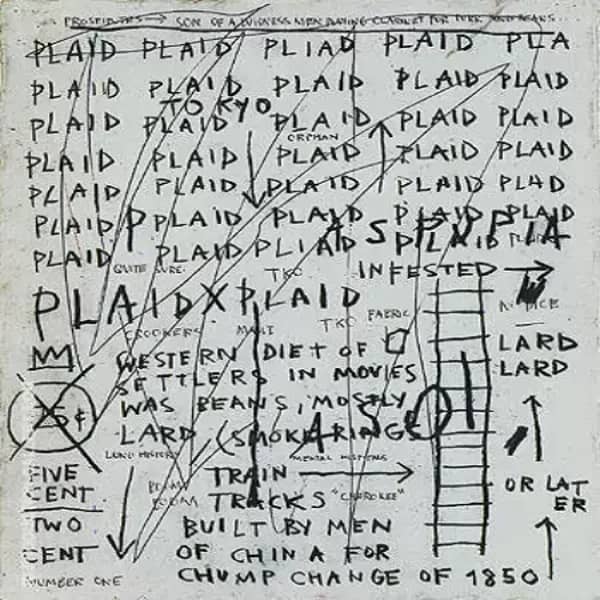 SON OF A BUSINESS MEN PLAYING CLARINET FOR
PLAID PLAID PLIAD PLAID PLA
PLAID PLAID PLAID PLAID PLAID
TOKYO
PLAID PLAID PLAID PLAID PLAID
ORPHAN
PLAID PLAID PLAID PLAID
PLAID PLAID PLAID PLAID PLAD
PLAID P PLAID PLAID PLAID PLAID
PLAID PLAID PLIAD PLAID
QUITE SURE. TKO INFESTED
PLAIDXPLAID
CROOKERS TKO FABRIC
LARD
WESTERN DIET OF
LARD
SETTLERS IN MOVIES
25¢ WAS BEANS, MOSTLY
LARD (SMOKE RINGS
LUNG HISTORY
FIVE
CENT
TRAIN
TRACKS "CHEROKEE"
OR LAT
ER
TWO
CENT
BUILT BY MEN
OF CHINA FOR
NUMBER ONE
CHUMP CHANGE OF 1850